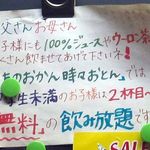 父さんお母さん
子様にも100%ジュースやウーロン茶
飲ませてあげて下さいネ!
のおかん時々おとん」では
学生未満のお子様は2杯目〜
無料』の飲み放題です
SALE